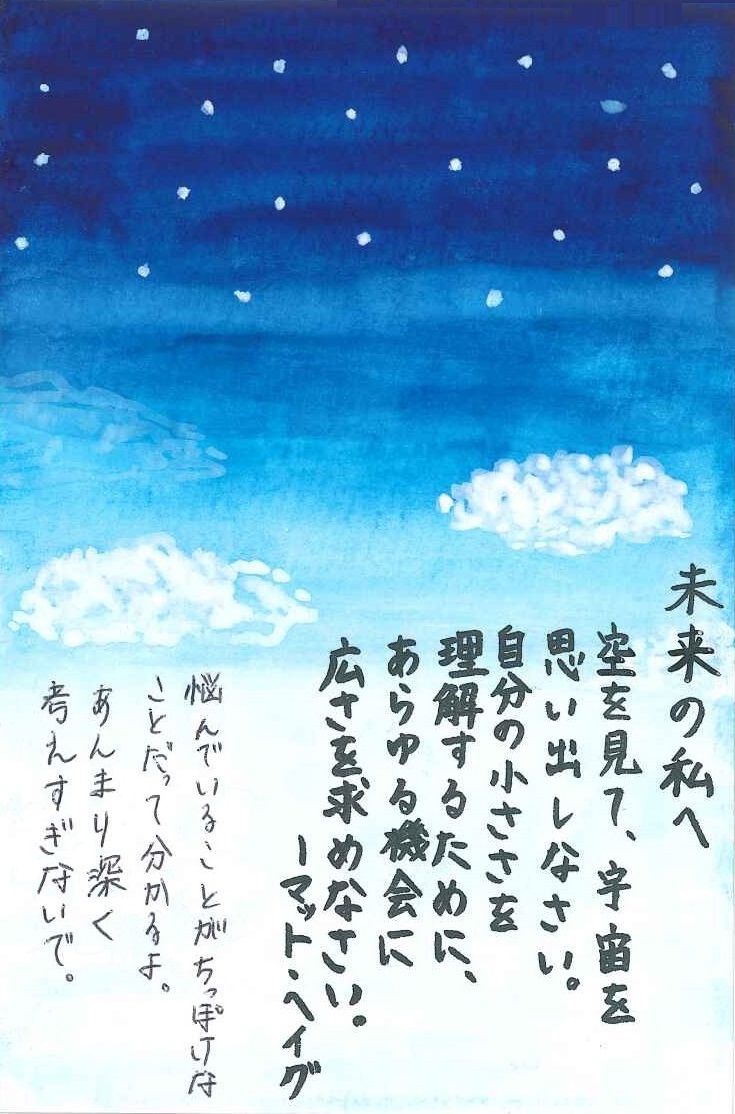 未来の私へ
空を見て、宇宙を
思い出しなさい。
自分の小ささを
理解するために、
あらゆる機会に
広さを求めなさい。
ーマット・ヘイグ
悩んでいることがちっぽけな
ことだって分かるよ。
あんまり深く
考えすぎないで。